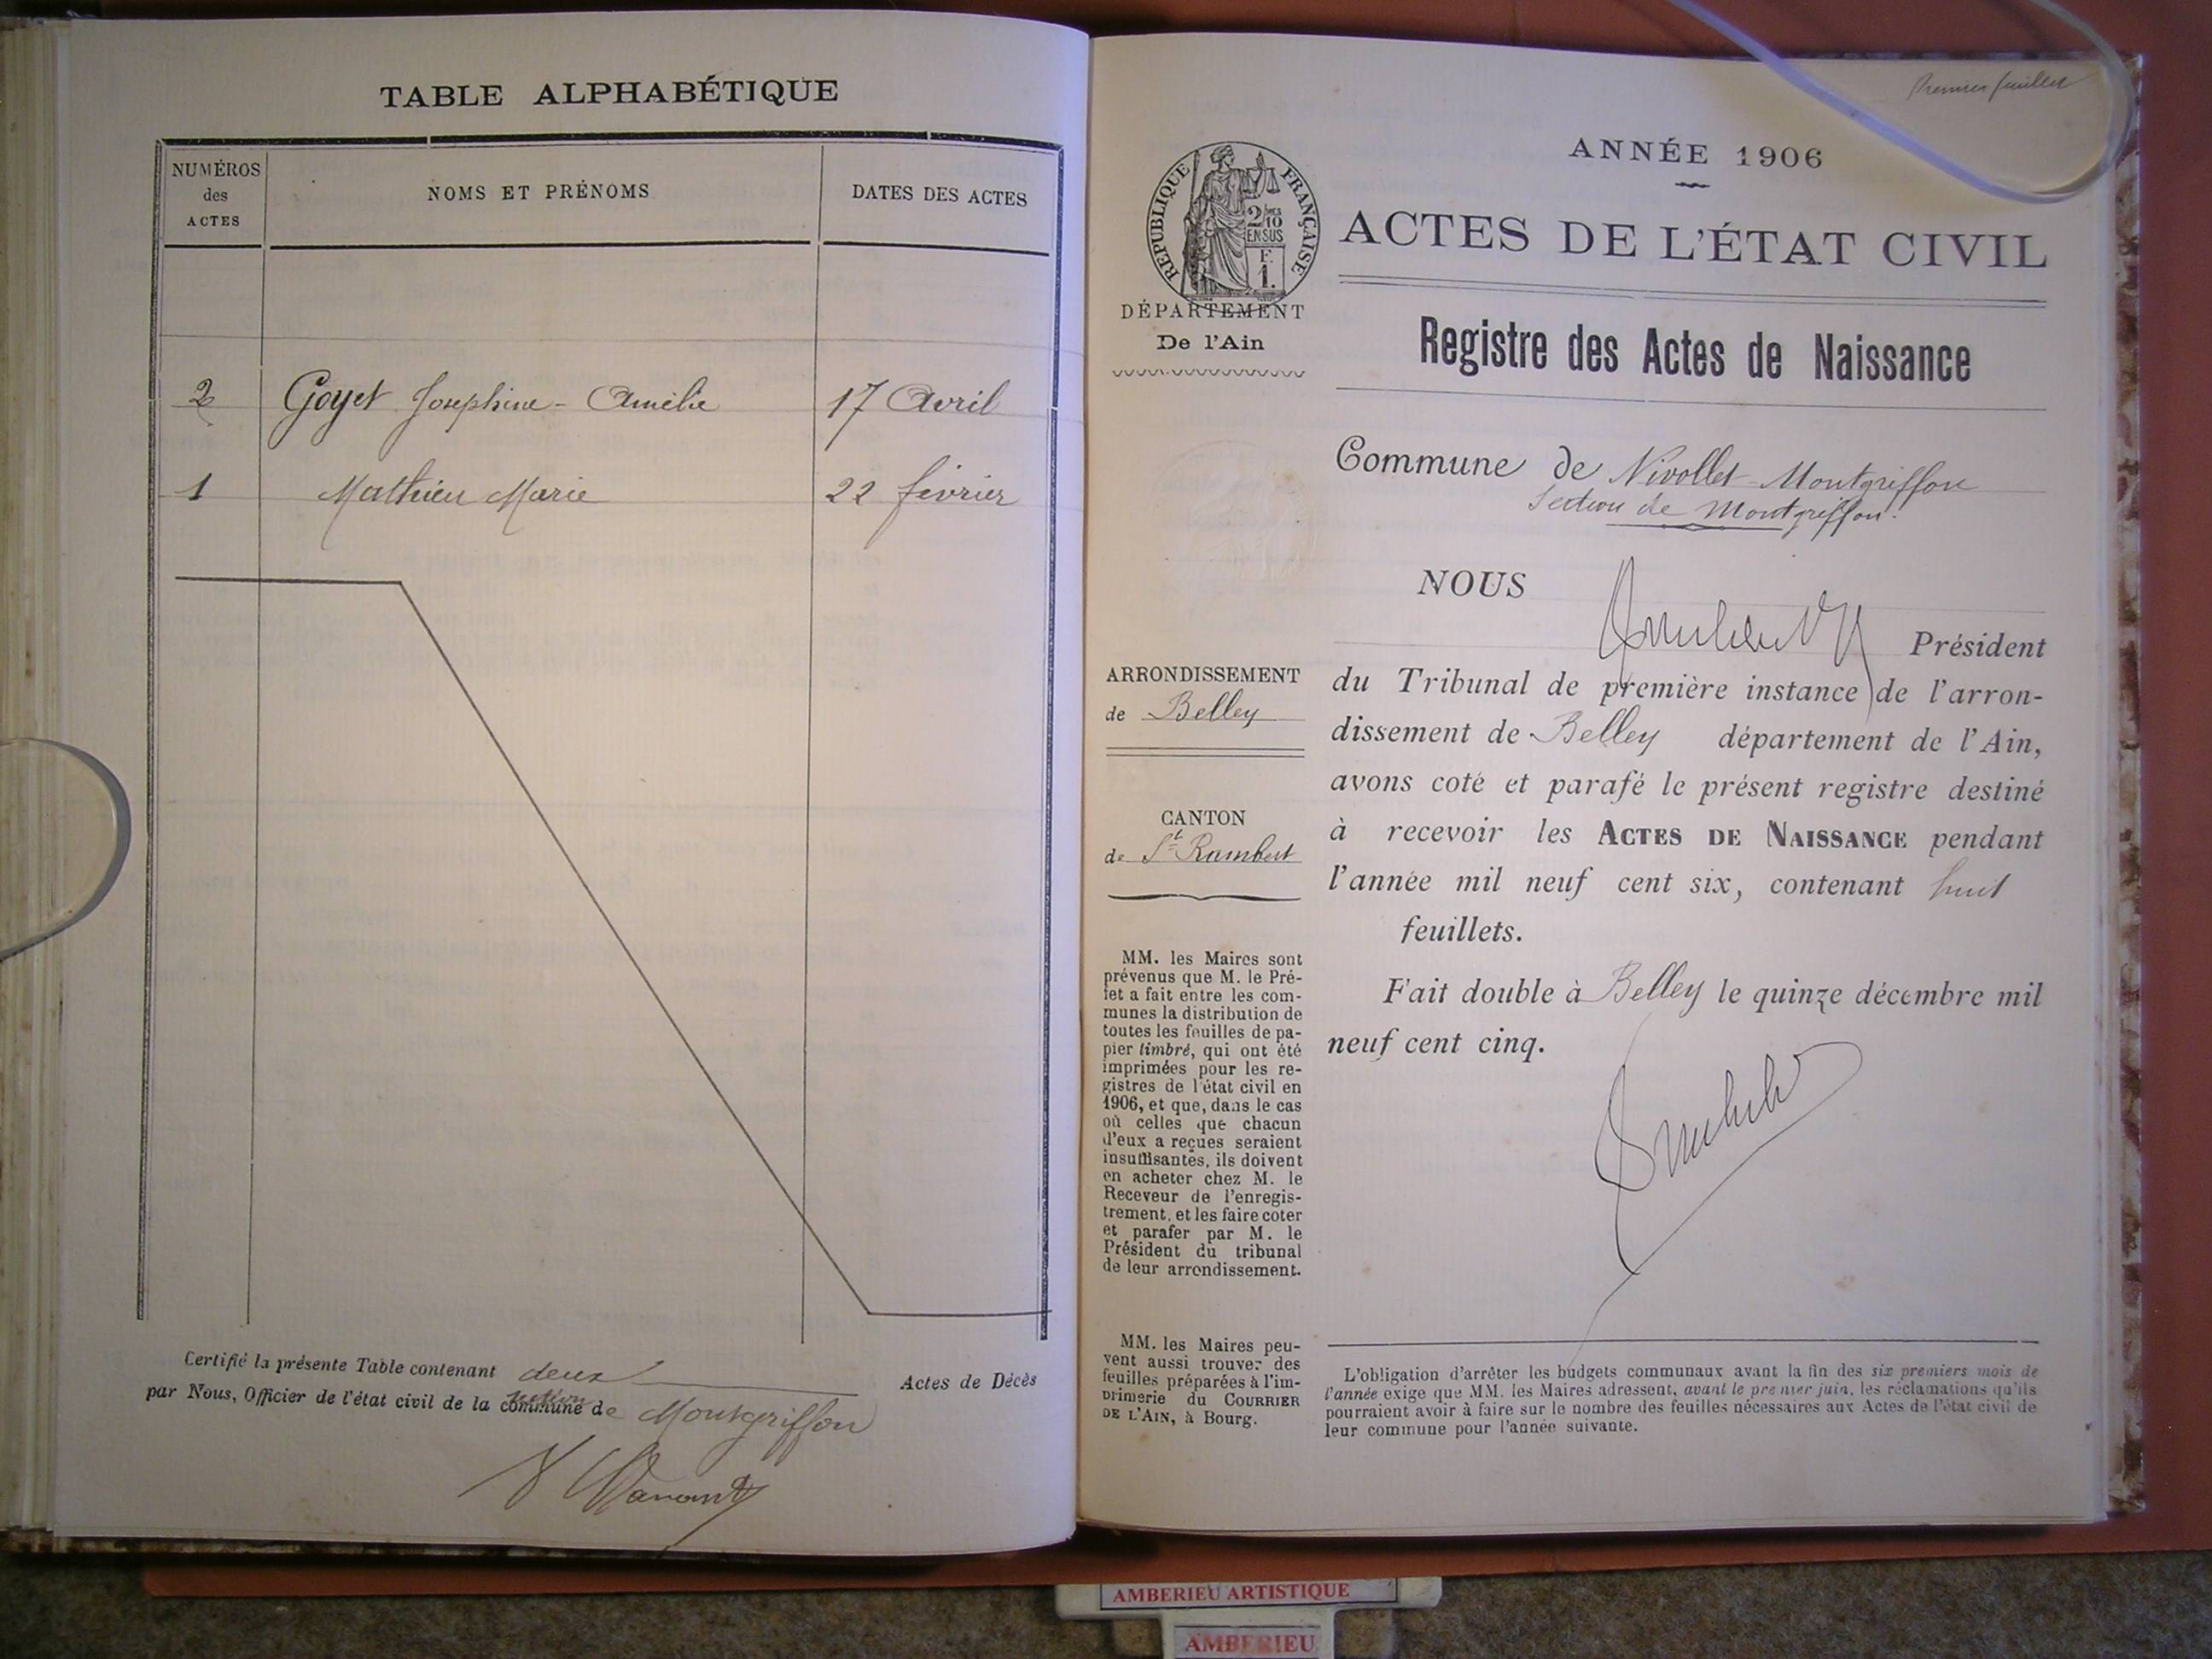 TABLE ALPHABÉTIQUE
NUMÉROS
des
ACTES
NOMS ET PRÉNOMS
DATES DES ACTES
2 Goyet Joséphine - Amélie 17 Avril
1 Mathieu Marie 22 février
Certifié la présente Table contenant deux Actes de Décès
par Nous, Officier de l'état civil de la commune de Montgriffon
section
Premier feuillet
ANNÉE 1906
RÉPUBLIQUE FRANÇAISE
2/10
EN SUS
F.
1.
ACTES DE L'ÉTAT CIVIL
DÉPARTEMENT
De l'Ain
Registre des Actes de Naissance
Commune de Nivollet-Montgriffon
Section de Montgriffon.
NOUS
Président
du Tribunal de première instance de l'arron-
dissement de Belley département de l'Ain,
avons coté et parafé le présent registre destiné
à recevoir les ACTES DE NAISSANCE pendant
l'année mil neuf cent six, contenant huit
feuillets.
Fait double à Belley le quinze décembre mil
neuf cent cinq.
ARRONDISSEMENT
de Belley
CANTON
de St Rambert
MM. les Maires sont
prévenus que M. le Pré-
fet a fait entre les com-
munes la distribution de
toutes les feuilles de pa-
pier timbré, qui ont été
imprimées pour les re-
gistres de l'état civil en
1906, et que, dans le cas
où celles que chacun
d'eux a reçues seraient
insuffisantes, ils doivent
en acheter chez M. le
Receveur de l'enregis-
trement, et les faire coter
et parafer par M. le
Président du tribunal
de leur arrondissement.
MM. les Maires peu-
vent aussi trouver des
feuilles préparées à l'im-
primerie du COURRIER
DE L'AIN, à Bourg.
L'obligation d'arrêter les budgets communaux avant la fin des six premiers mois de
l'année exige que MM. les Maires adressent, avant le premier juin, les réclamations qu'ils
pourraient avoir à faire sur le nombre des feuilles nécessaires aux Actes de l'état civil de
leur commune pour l'année suivante.
AMBERIEU ARTISTIQUE
AMBERIEU